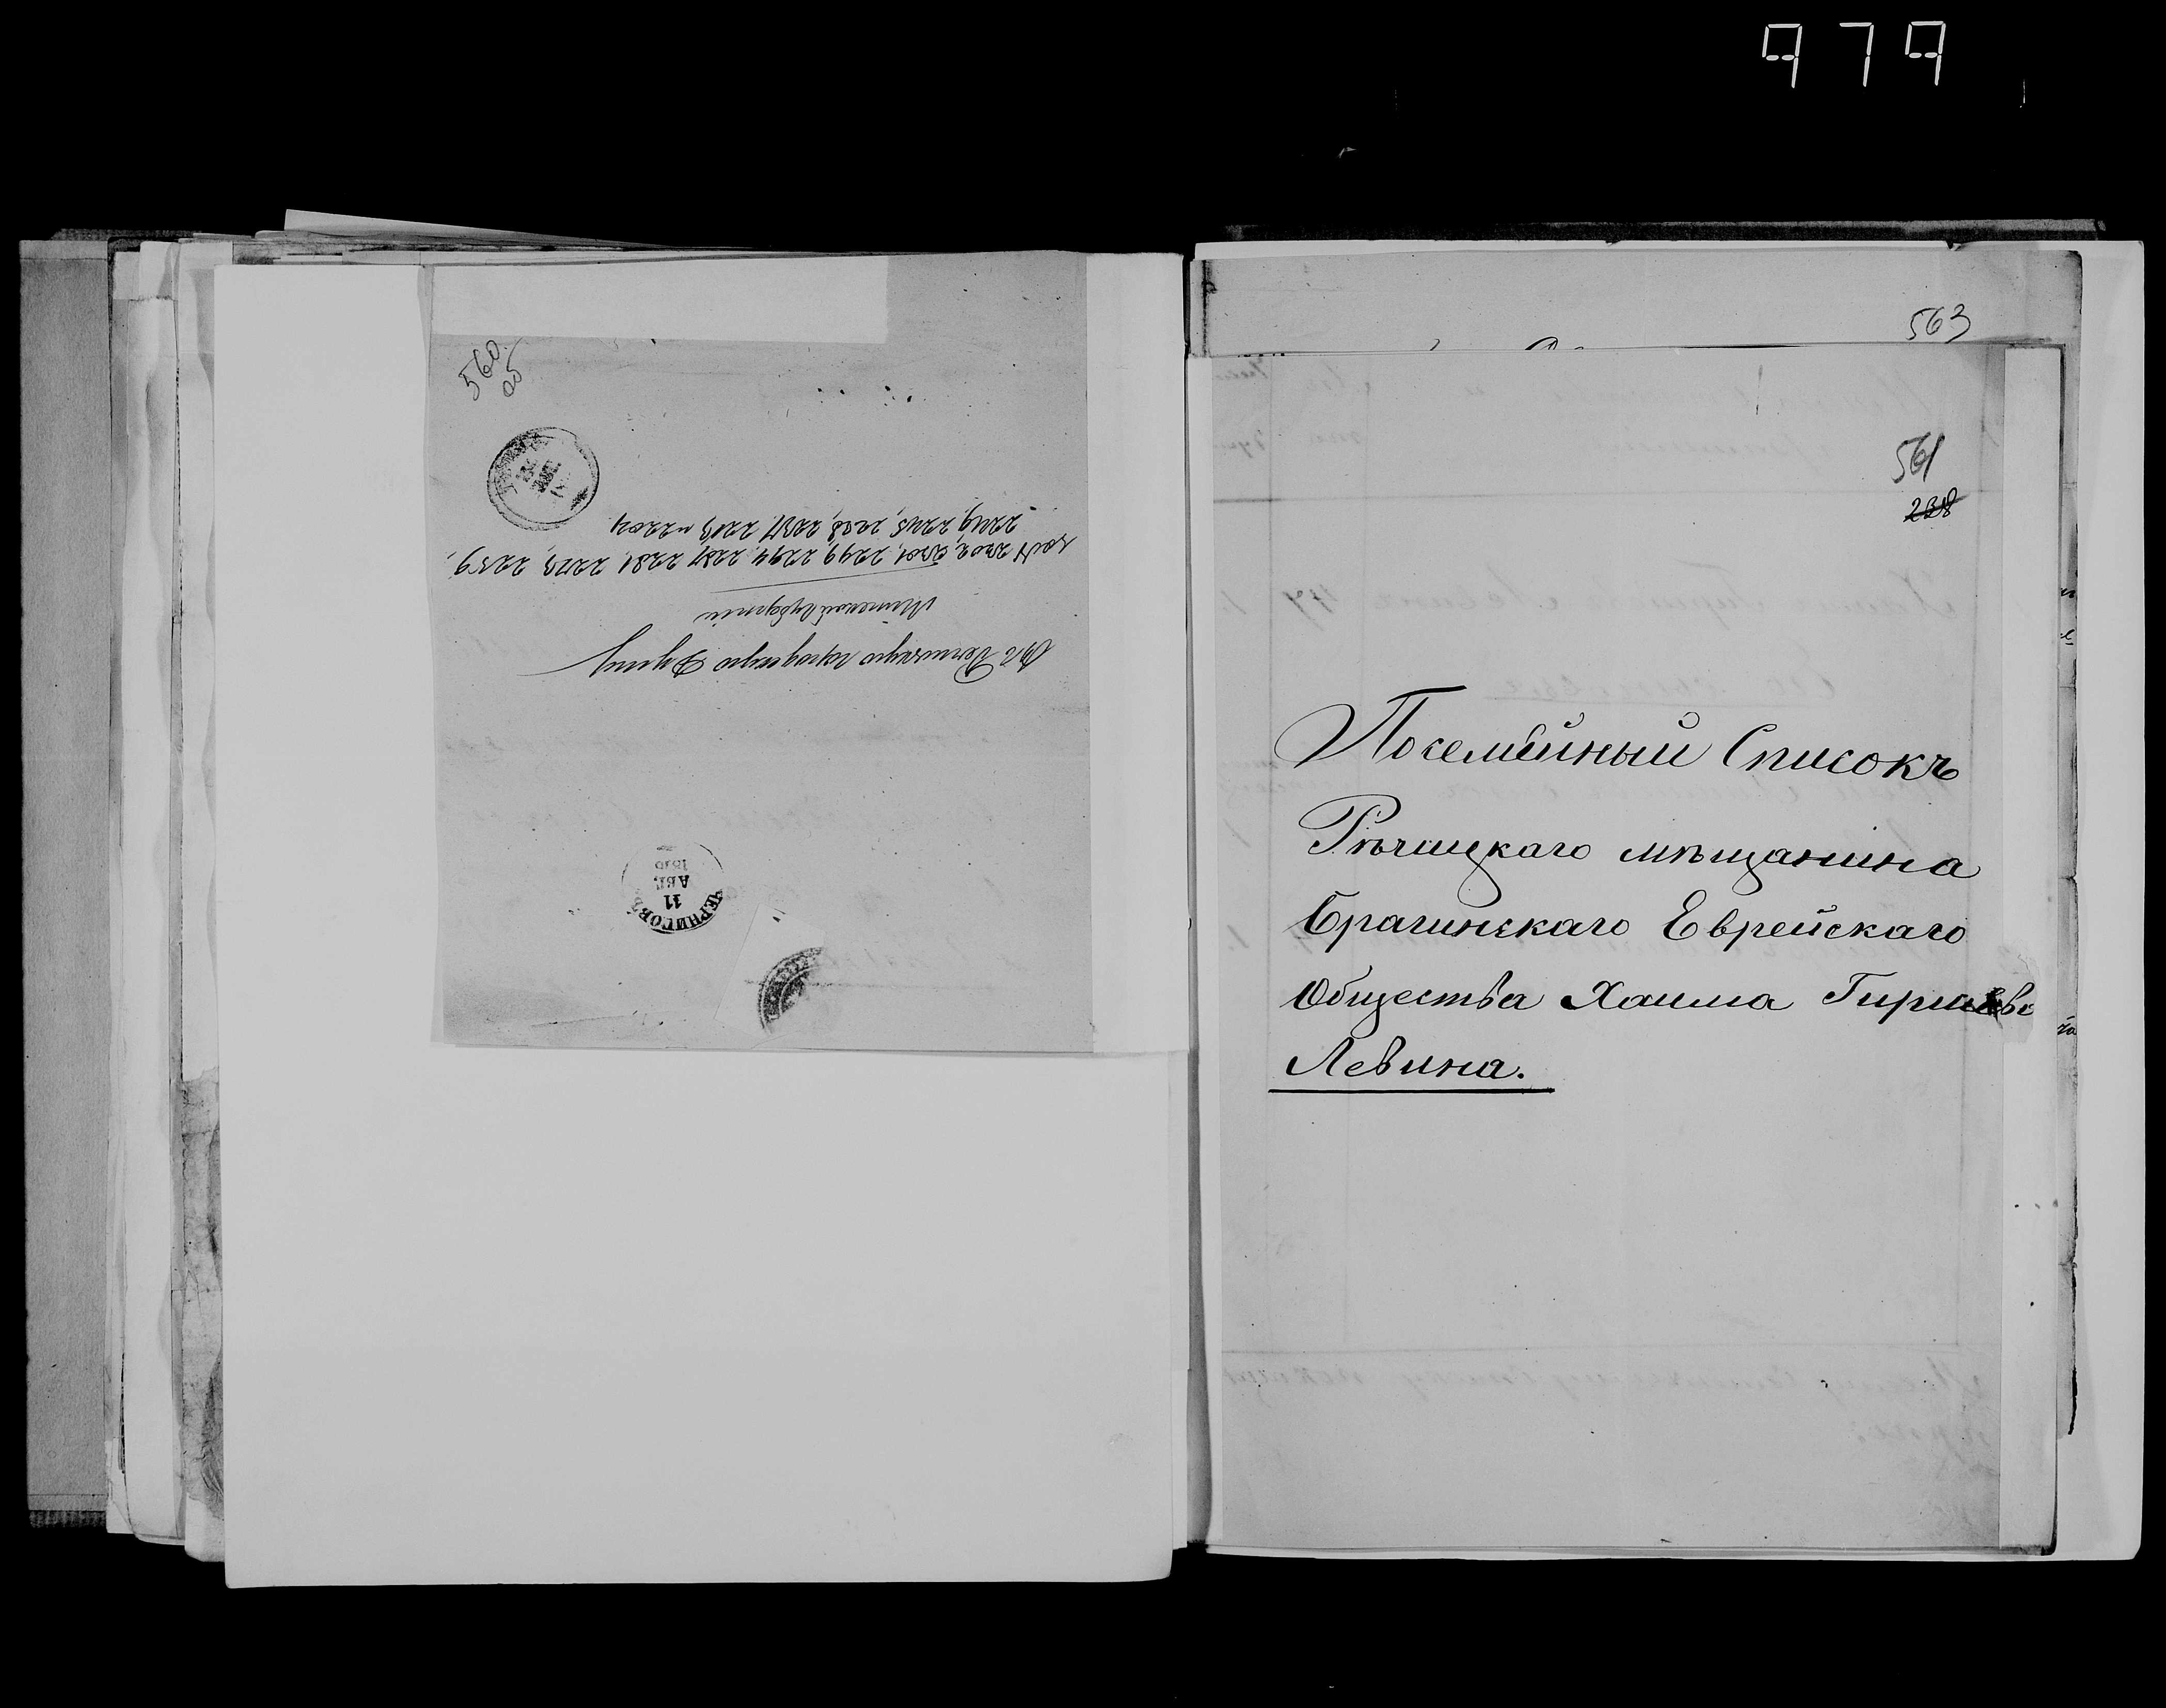 979
560
об
Въ Речицкую городскую Думу
Минской Губерніи
2202, 2201, 2299, 2294, 2287, 2281, 2273, 2259,
2249, 2245, 2238, 2237, 2213 и 2204
ЧЕРНИГОВЪ
11
АВГ.
563
561
238
Посемейный Списокъ
Рѣчицкаго мѣщанина
Брагинскаго Еврейскаго
Общества Хаима Гиршева
Левина.